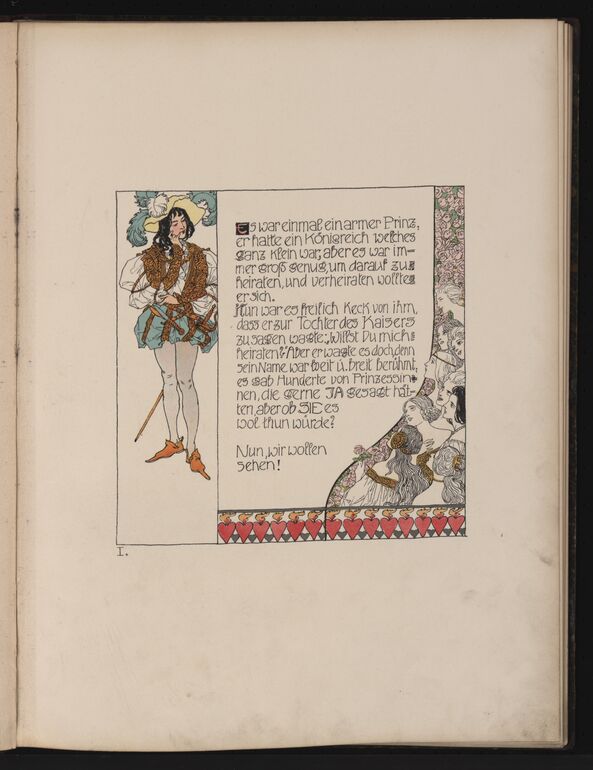 Es war einmal ein armer Prinz,
er hatte ein Königreich welches
ganz klein war, aber es war im-
mer groß genug, um darauf zu
heiraten, und verheiraten wollte
er sich.
Nun war es freilich keck von ihm,
dass er zur Tochter des Kaisers
zu sagen wagte: „Willst Du mich
heiraten? Aber er wagte es doch, denn
sein Name war weit u. breit berühmt,
es gab Hunderte von Prinzessin
nen, die gerne JA gesagt hät-
ten, aber ob SIE es
wol thun würde?
Nun, wir wollen
sehen!
I.